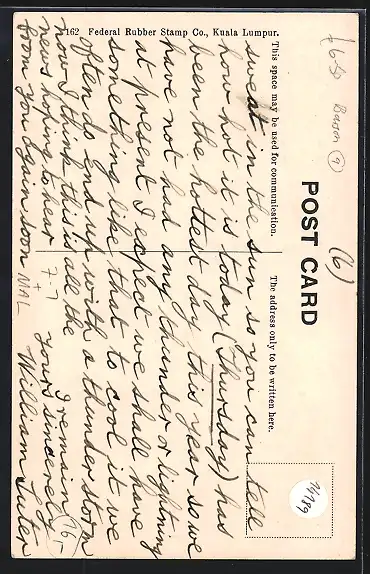 7162 Federal Rubber Stamp Co., Kuala Lumpur.
POST CARD
This space may be used for communication.
The address only to be written here.
(6)
sweat in the sun so you can tell
how hot it is today (Thursday) has
been the hottest day this year so we
have not had any thunder or lightning
at present I expect we shall have
something like that to cool it we
often do end up with a thunder storm
now I think this is all the
news hoping to hear
from you again soon
I remain
yours sincerely
William Suter
7-7
MAL
16/-